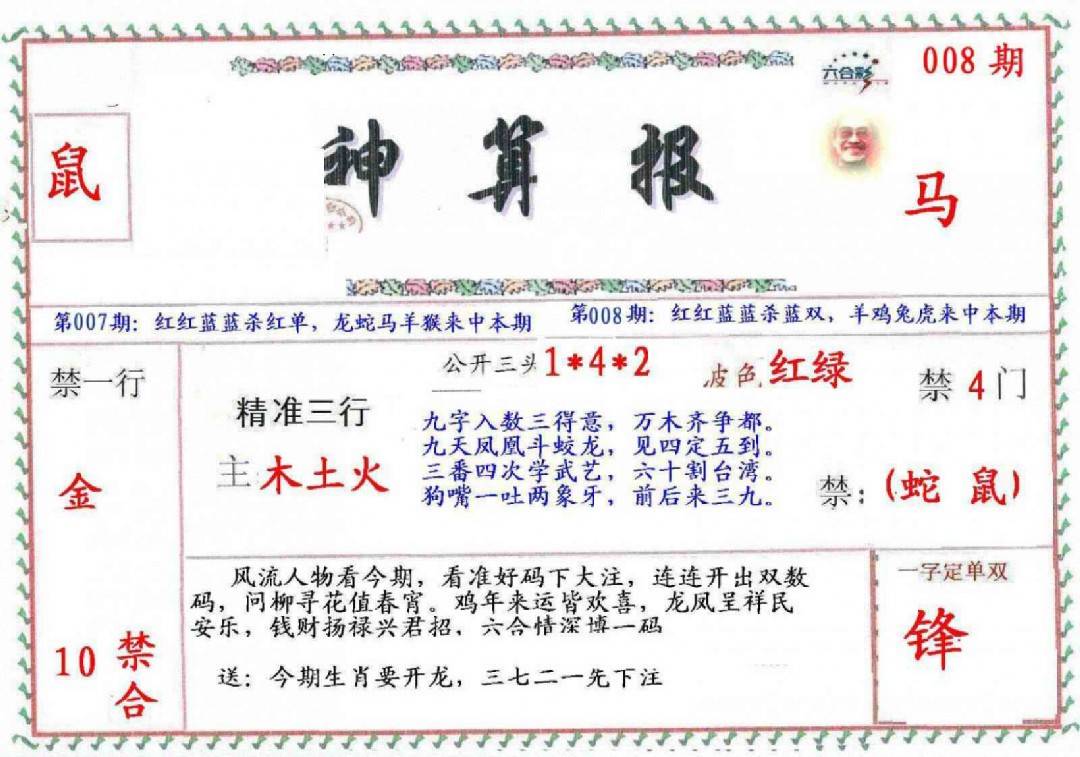 六合彩
008 期
鼠
神算报
马
第007期：红红蓝蓝杀红单，龙蛇马羊猴来中本期
第008期：红红蓝蓝杀蓝双，羊鸡兔虎来中本期
禁一行
金
10 禁合
精准三行
主 木土火
公开三头 1*4*2
波色 红绿
九字入数三得意，万木齐争都。
九天凤凰斗蛟龙，见四定五到。
三番四次学武艺，六十割台湾。
狗嘴一吐两象牙，前后来三九。
禁 4 门
禁：(蛇 鼠)
风流人物看今期，看准好码下大注，连连开出双数
码，问柳寻花值春宵。鸡年来运皆欢喜，龙凤呈祥民
安乐，钱财扬禄兴君招，六合情深博一码
送：今期生肖要开龙，三七二一先下注
一字定单双
锋